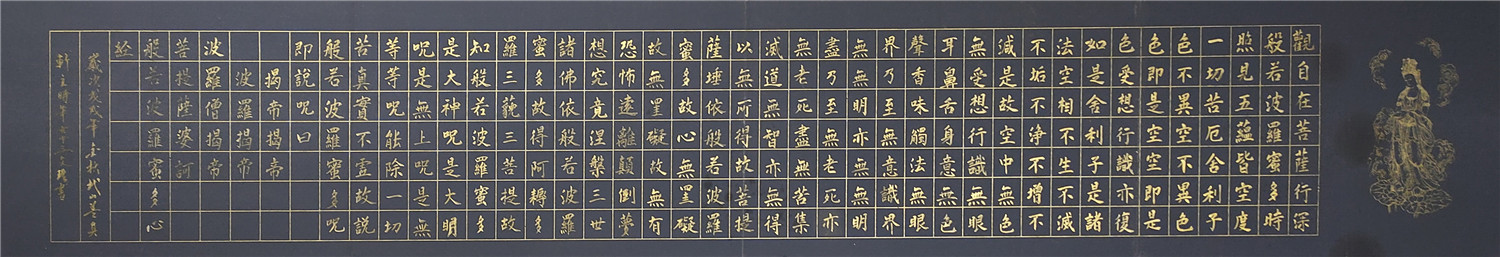 觀自在菩薩行深
般若波羅蜜多時
照見五蘊皆空度
一切苦厄舍利子
色不異空不異色
色即是空空即是
色受想行識亦復
如是舍利子是諸
法空相不生不滅
不垢不淨不增不
減是故空中無色
無受想行識無眼
耳鼻舌身意無色
聲香味觸法無眼
界乃至無意識界
無無明亦無無明
盡乃至無老死亦
無老死盡無苦集
滅道無智亦無得
以無所得故菩提
薩埵依般若波羅
蜜多故心無罣礙
故無罣礙故無有
恐怖遠離顛倒夢
想究竟涅槃三世
諸佛依般若波羅
蜜多故得阿耨多
羅三藐三菩提故
知般若波羅蜜多
是大神呪是大明
呪是無上呪是無
等等呪能除一切
苦真實不虛故說
般若波羅蜜多呪
即說呪曰
揭帝揭帝
波羅揭帝
波羅僧揭帝
菩提薩婆訶
般若波羅蜜多心
經
歲次戊年金秋
軒主時年書